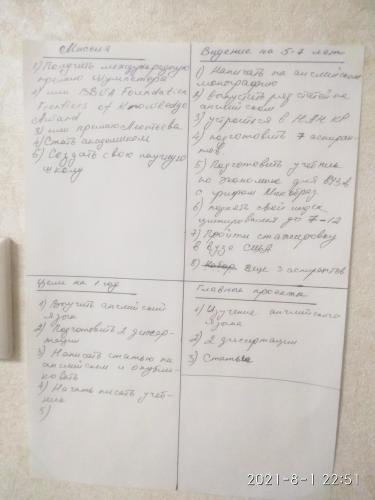 Миссия
1) Получить международную
премию Шумпетера
2) или BBVA Foundation
Frontiers of Knowledge
Award
3) или премию Леонтьева
4) Стать академиком
5) Создать свою научную
школу
Видение на 5-7 лет
1) Написать на английском
монографию
2) выпустить ряд статей на
английском
3) устроиться в НАН КР
4) подготовить 7 аспиран-
тов
5) Подготовить учебник
по экономике для ВУЗов
с грифом Минобраз
6) поднять свой индекс
цитирования до 7-12
7) Пройти стажировку
в вузе США
8) еще 3 аспирантов
Цели на 1 год
1) Выучить английский
язык
2) Подготовить 2 диссер-
тации
3) Написать статью на
английском и опубли-
ковать
4) Начать писать учеб-
ник
5)
Главные проекта
1) Изучение английского
языка
2) 2 диссертации
3) Статья
2021-8-1 22:51